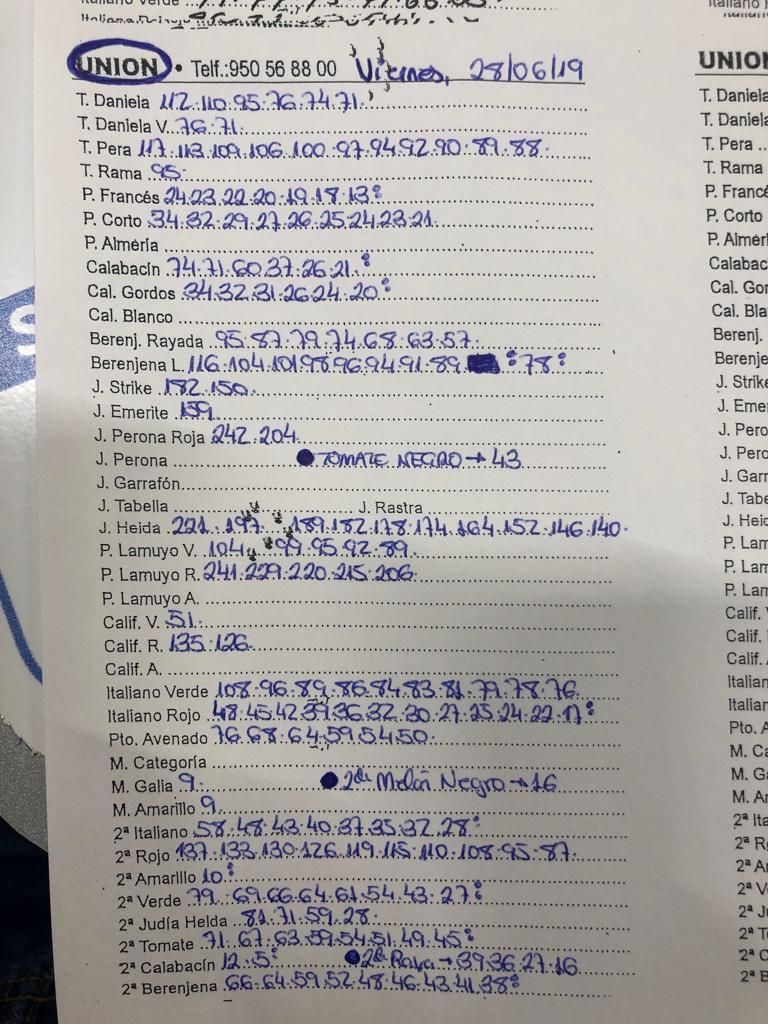 Italiano Verde
UNION • Telf.:950 56 88 00 Viernes, 28/06/19
T. Daniela 112.110.95.76.74.71.
T. Daniela V. 76.71.
T. Pera 117.113.109.106.100.97.94.92.90.89.88.
T. Rama 95.
P. Francés 24.23.22.20.19.18.13:
P. Corto 34.32.29.27.26.25.24.23.21.
P. Almería
Calabacín 74.71.60.37.26.21.:
Cal. Gordos 34.32.31.26.24.20:
Cal. Blanco
Berenj. Rayada 95.87.79.74.68.63.57.
Berenjena L. 116.104.101.98.96.94.91.89. :78:
J. Strike 182.150.
J. Emerite 159.
J. Perona Roja 242.204.
J. Perona ● TOMATE NEGRO → 43
J. Garrafón
J. Tabella J. Rastra
J. Helda 221.197. 189.182.178.174.164.152.146.140.
P. Lamuyo V. 104. 99.95.92.89.
P. Lamuyo R. 241.229.220.215.206.
P. Lamuyo A.
Calif. V. 51.
Calif. R. 135.126.
Calif. A.
Italiano Verde 108.96.89.86.84.83.81.79.78.76.
Italiano Rojo 48.45.42.39.36.32.30.27.25.24.22.17:
Pto. Avenado 76.68.64.59.54.50.
M. Categoría
M. Galia 9. ● 2ª Melón Negro → 16
M. Amarillo 9.
2ª Italiano 58.48.43.40.37.35.32.28:
2ª Rojo 137.133.130.126.119.115.110.108.95.87.
2ª Amarillo 10:
2ª Verde 79.69.66.64.61.54.43.27:
2ª Judía Helda 81.71.59.28.
2ª Tomate 71.67.63.59.54.51.49.45:
2ª Calabacín 12.5: ● 2ª Raya → 39.36.27.16
2ª Berenjena 66.64.59.52.48.46.43.41.38:
UNION
T. Daniela
T. Daniela
T. Pera
T. Rama
P. Francé
P. Corto
P. Almerí
Calabac
Cal. Gor
Cal. Bla
Berenj.
Berenje
J. Strike
J. Eme
J. Pero
J. Pero
J. Garr
J. Tabe
P. Lam
P. Lam
Calif. V
Calif.
Calif.
Italian
Italian
Pto. A
M. Ca
M. Ga
M. An
2ª Ita
2ª R
2ª A
2ª V
2ª J
2ª T
2ª C
2ª B